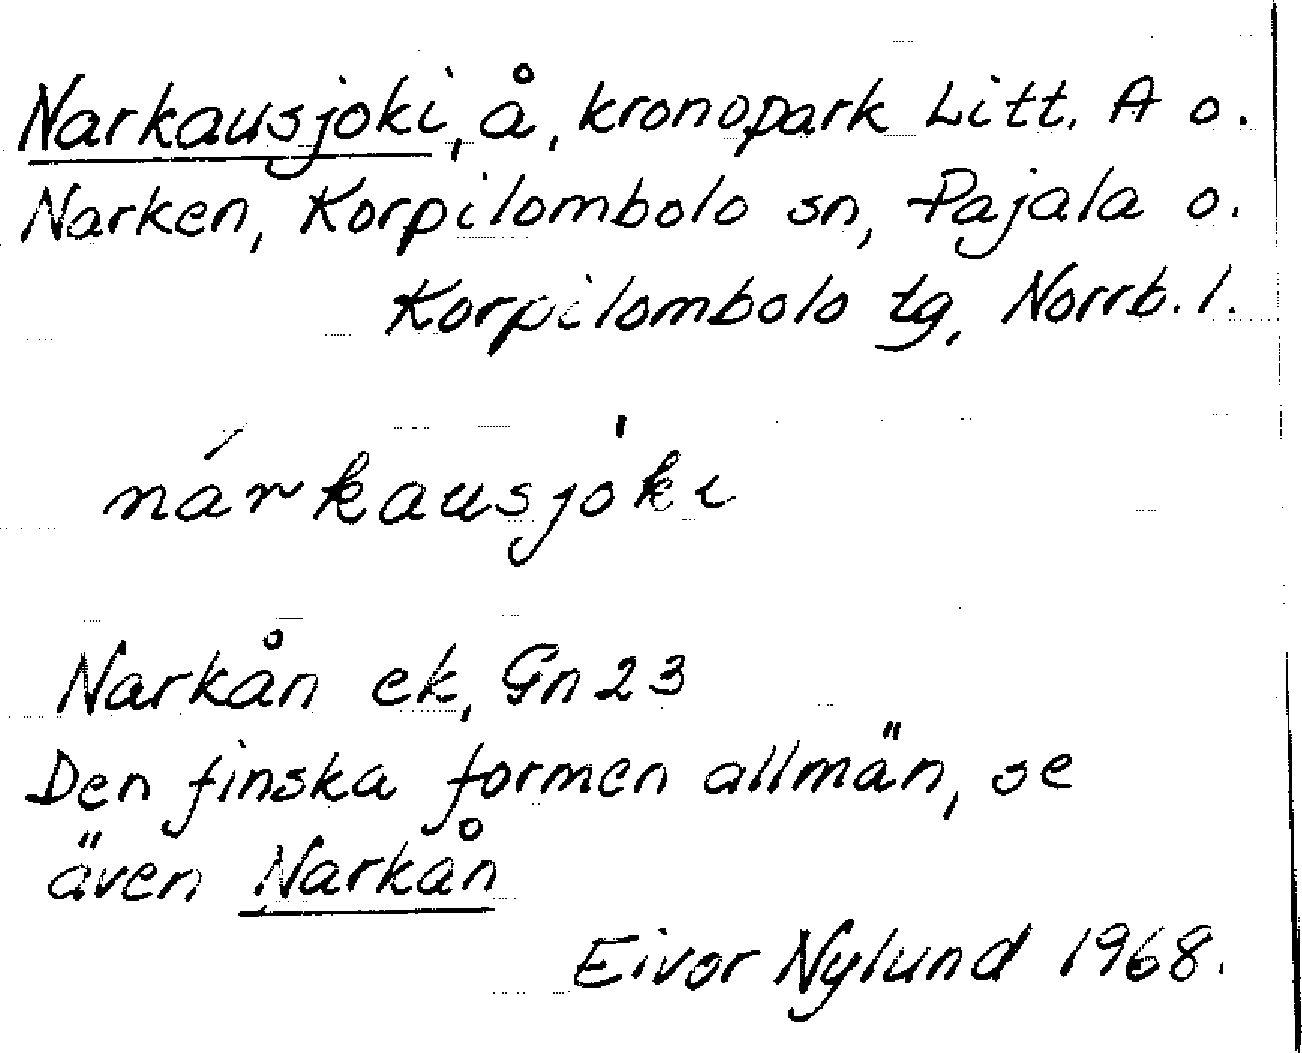 Narkausjoki, å, kronopark Litt. A o.
Narken, Korpilombolo sn, Pajala o.
Korpilombolo tg, Norrb. l.
nárkausjòki
Narkån ek, Gn 23
Den finska formen allmän, se
även Narkån
Eivor Nylund 1968.